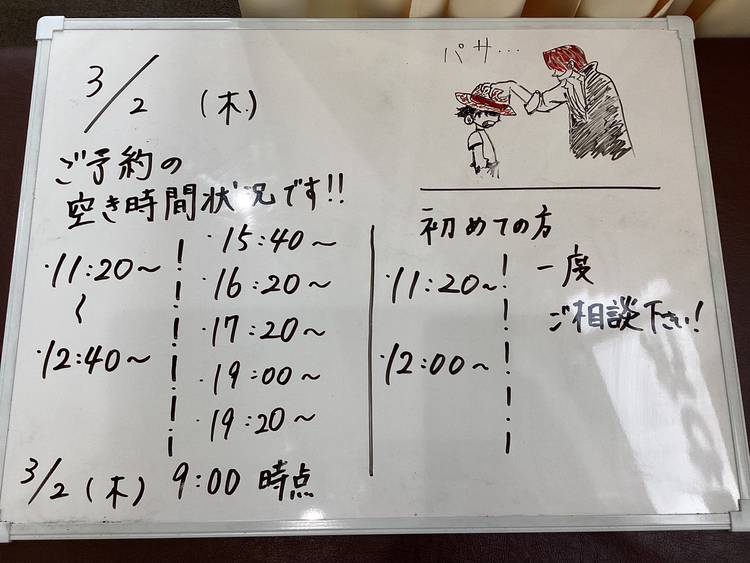 3/2 (木)
パサ…
ご予約の
空き時間状況です!!
・11:20〜
〜
・12:40〜
・15:40〜
・16:20〜
・17:20〜
・19:00〜
・19:20〜
初めての方
・11:20〜
・12:00〜
一度
ご相談下さい!
3/2(木) 9:00 時点